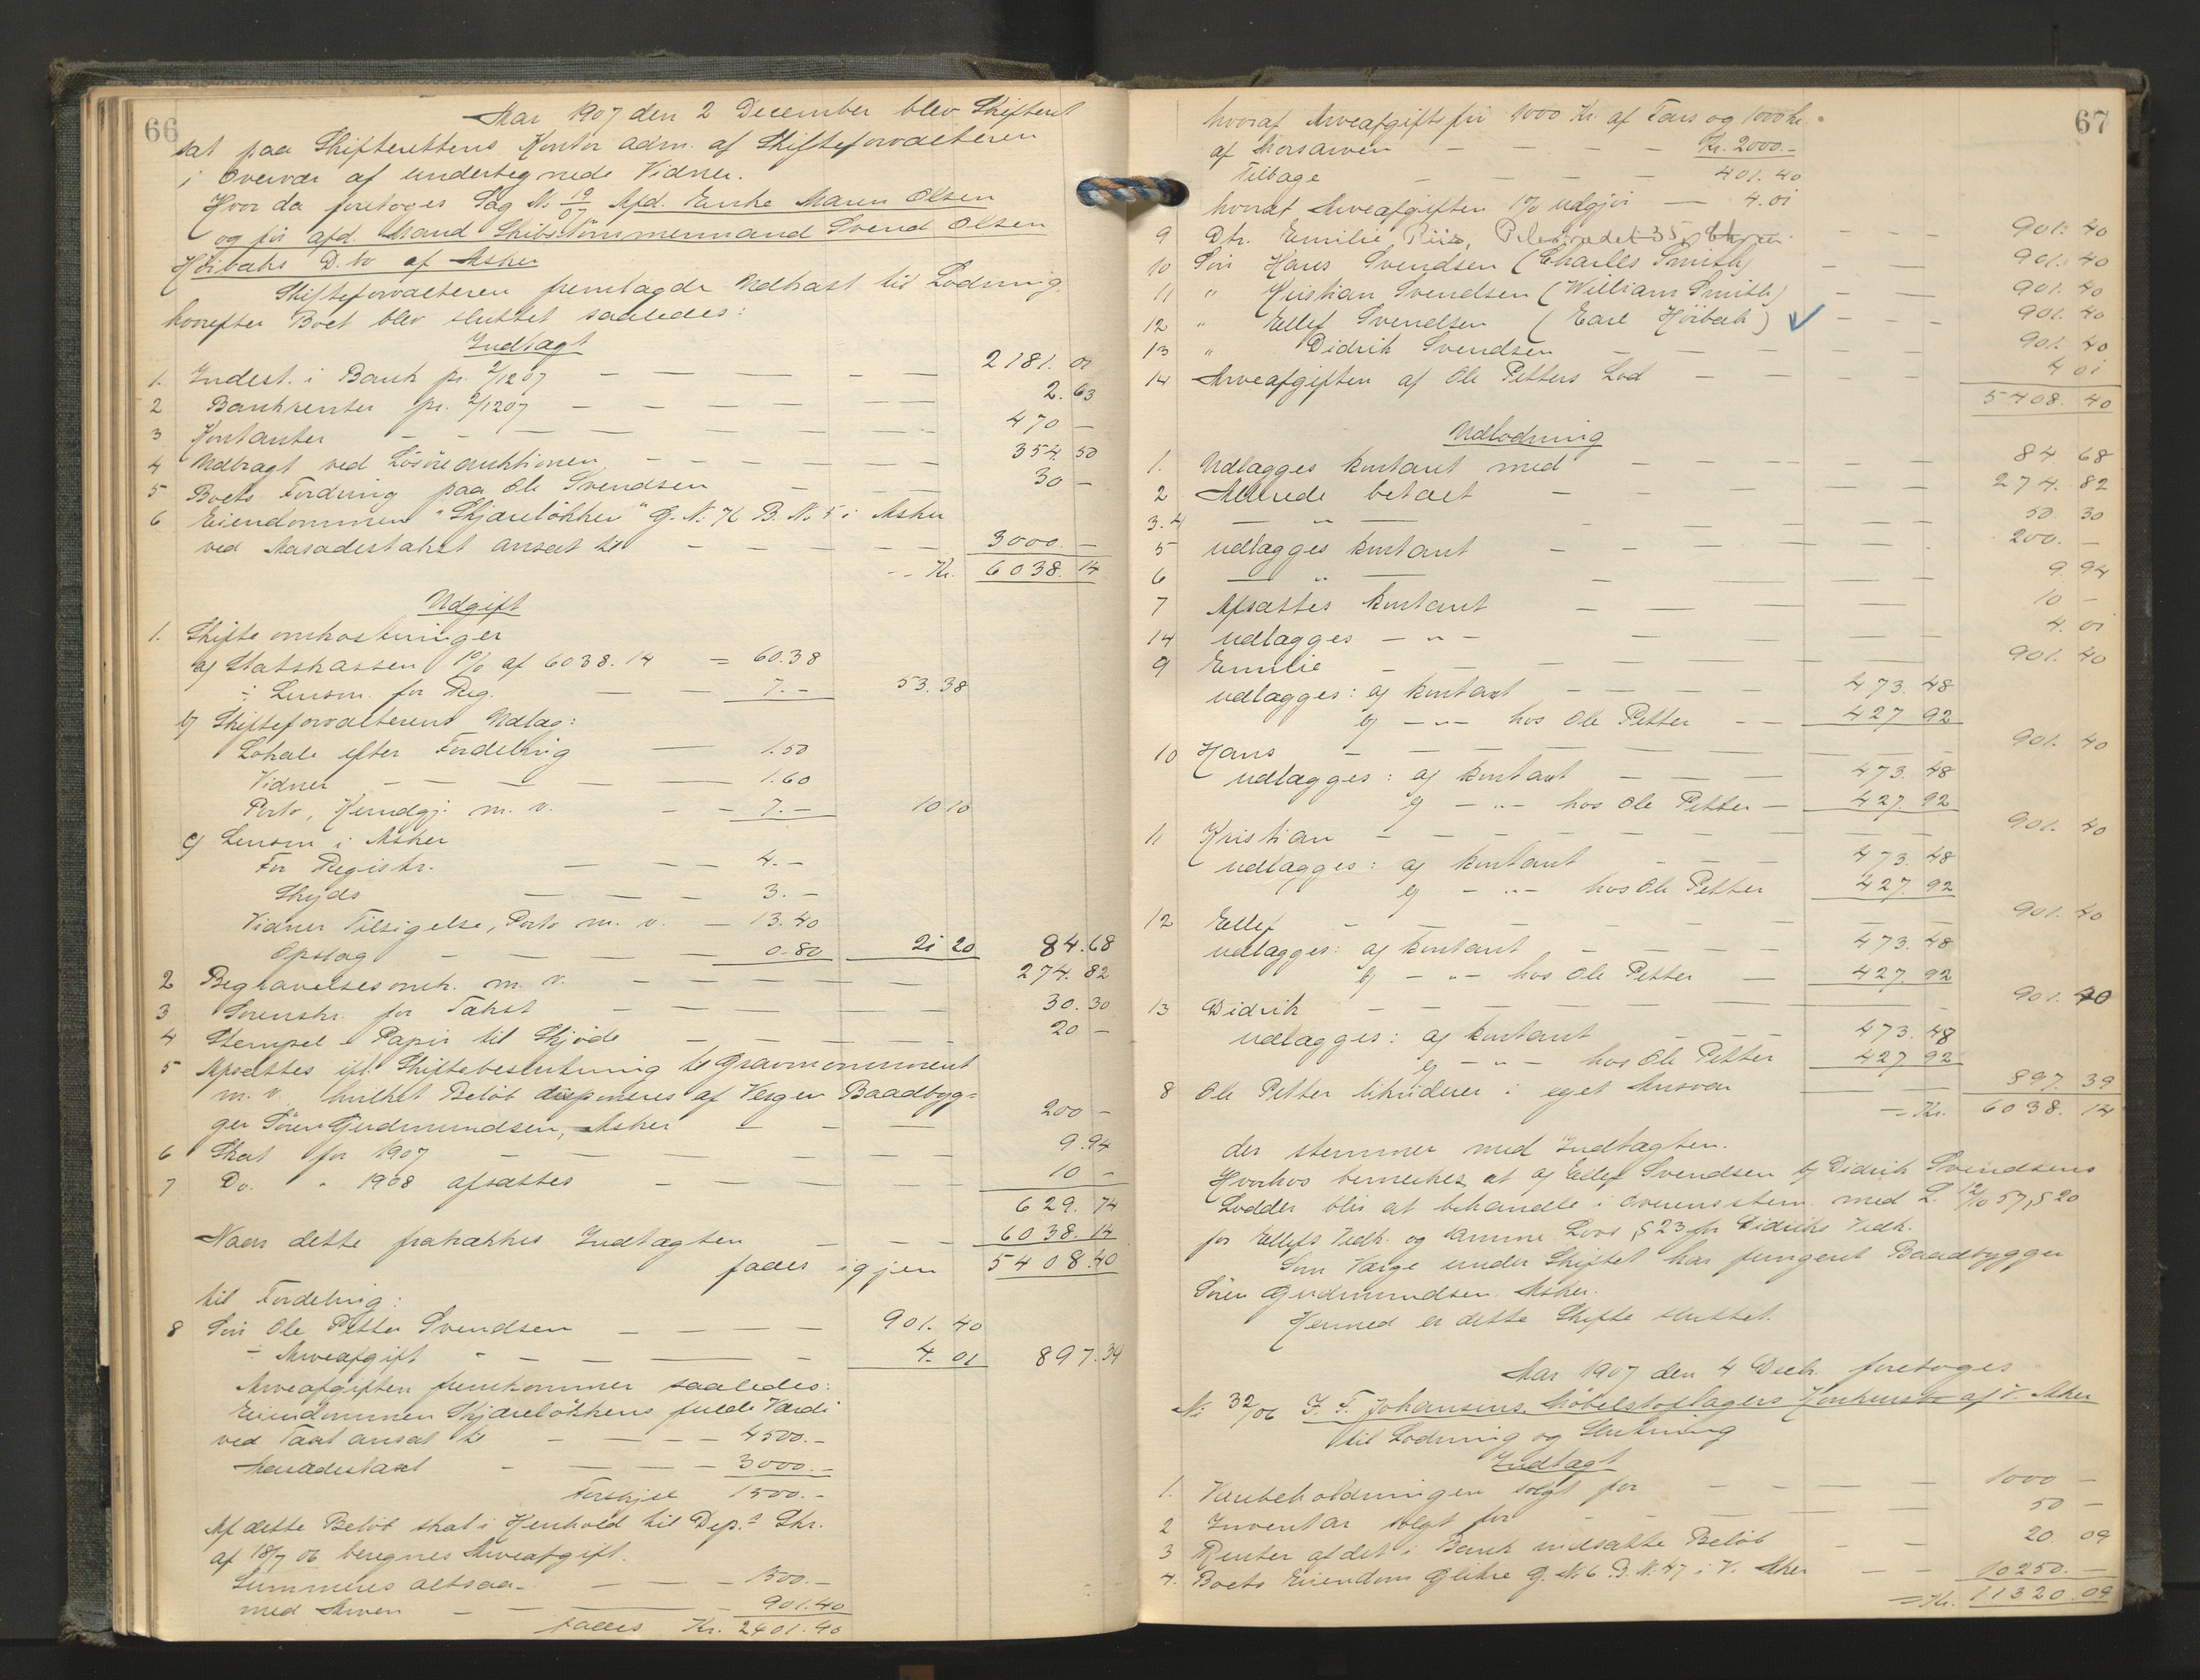 66
Aar 1907 den 2 December blev Skifteret
sat paa Skifterettens Kontor adm. af Skifteforvalteren
i Overvær af undertegnede Vidner.
Hvor da foretoges Sag N. 19/07 Afd. Enke Maren Olsen
og før afd. Mand Skibstømmermand Svend Olsen
Høibæks D.bo af Asker
Skifteforvalteren fremlagde Udkast til Lodning
hvorefter Boet blev sluttet saaledes:
Indtægt
1. Indest. i Bank pr. 2/12 07 — — — — 2181. 01
2 Bankrenter pr. 2/12 07 — — — — 2. 63
3 Kontanter — — — — 470 —
4 Udbragt ved Løsøreauktionen — — — — 354. 50
5 Boets Fordring paa Ole Svendsen — — — 30 —
6 Eiendommen "Skjæreløkken" G. N. 76 B. N. 5 i Asker
ved Aasædestaxt ansat til — — — — 3000. —
Kr. 6038. 14
Udgift
1. Skifteomkostninger
a) Statskassen 1% af 6038.14 = 60.38
÷ Lensm. for Reg. — — 7.— 53.38
b) Skifteforvalterens Udlæg:
Lokale efter Fordeling — 1.50
Vidner — — — — 1.60
Porto, Kundgj. m. v. — — 7.— 10 10
c) Lensm i Asker
For Registr. — — — 4.—
Skyds — — — — 3.—
Vidner Tilsigelse, Porto m. v. — 13.40
Opslag — — — — 0.80 21 20 84.68
2 Begravelsesomk. m. v. — — — — 274. 82
3 Sorenskr. for Takst — — — — 30. 30
4 Stempel - Papir til Skjøde — — — — 20 —
5 Afsættes ifl. Skiftebeslutning til Gravmonument
m. v. hvilket Beløb disponeres af Værgen Baadbyg=
ger Søren Gudmundsen, Asker — — — 200 —
6 Skat for 1907 — — — — 9.94
7 Do. " 1908 afsættes — — — — 10 —
629. 74
Naar dette fratrækkes Indtægten — — — 6038. 14
faaes igjen 5408.40
til Fordeling:
8 Søn Ole Petter Svendsen — — — 901. 40
÷ Arveafgift — — — — 4. 01 897.39
Arveafgiften fremkommer saaledes:
Eiendommen Skjæreløkkens fulde Værdi
ved Taxt ansat til — — — — 4500.—
Aasædestaxt — — — — 3000.—
Forskjel 1500.—
Af dette Beløb skal i Henhold til Dep.s Skr.
af 18/7 06 beregnes Arveafgift.
Summeres altsaa — — — 1500.—
med Arven — — — — 901.40
faaes Kr. 2401.40
67
hvoraf Arveafgiftsfri 1000 Kr. af Fars og 1000 kr.
af Morsarven — — — — Kr. 2000.—
Tilbage — — — — 401.40
hvoraf Arveafgiften 1% udgjør — 4.01
9 Dtr. Emilie Riis, Pilestrædet 35 — — — 901. 40
10 Søn Hans Svendsen (Charles Smith) — — 901. 40
11 " Kristian Svendsen (William Smith) — — 901. 40
12 " Ellef Svendsen (Earl Höibak) — — 901. 40
13 " Didrik Svendsen — — — — 901. 40
14 Arveafgiften af Ole Petters Lod — — — — 4 01
5408. 40
Udlodning
1. Udlægges kontant med — — — — 84. 68
2 Allerede betalt — — — — 274. 82
3.4 — " — — — — 50. 30
5 udlægges kontant — — — — 200. —
6 — " — — — — 9. 94
7 Afsættes kontant — — — — 10 —
14 udlægges — " — — — — 4. 01
9 Emilie — — — — 901. 40
udlægges: a) kontant — — — 473. 48
b) — " — hos Ole Petter — — 427. 92
10 Hans — — — — 901. 40
udlægges: a) kontant — — — 473. 48
b) — " — hos Ole Petter — 427. 92
11 Kristian — — — — 901. 40
udlægges: a) kontant — — — 473. 48
b) — " — hos Ole Petter 427. 92
12 Ellef — — — — 901. 40
udlægges: a) kontant — — — 473. 48
b) — " — hos Ole Petter — 427. 92
13 Didrik — — — — 901. 40
udlægges: a) kontant — — 473. 48
b) — " — hos Ole Petter 427 92
8 Ole Petter likviderer i eget Ansvar — — 897. 39
= Kr. 6038. 14
der stemmer med Indtægten.
Hvorhos bemerkes at a) Ellef Svendsen b) Didrik Svendsens
Lodder blir at behandle i Overensstem. med L. 12/10 57, § 20
for Ellefs Vedk. og samme Lovs § 23 for Didriks Vedk.
Som Værge under Skiftet har fungeret Baadbygger
Søren Gudmundsen. Asker.
Hermed er dette Skifte sluttet.
Aar 1907 den 4 Decb. foretoges
N: 32/06 J. F. Johansens Møbelstoflagers Konkursbo af V. Aker
til Lodning og Slutning
Indtægt
1. Varebeholdningen solgt for — — — — 1000 —
2 Inventar solgt for — — — — 50 —
3 Renter af det i Bank indsatte Beløb — — 20. 09
4. Boets Eiendom G. N. 6 B. N. 47 i V. Aker — — 10250. —
= Kr. 11320.09